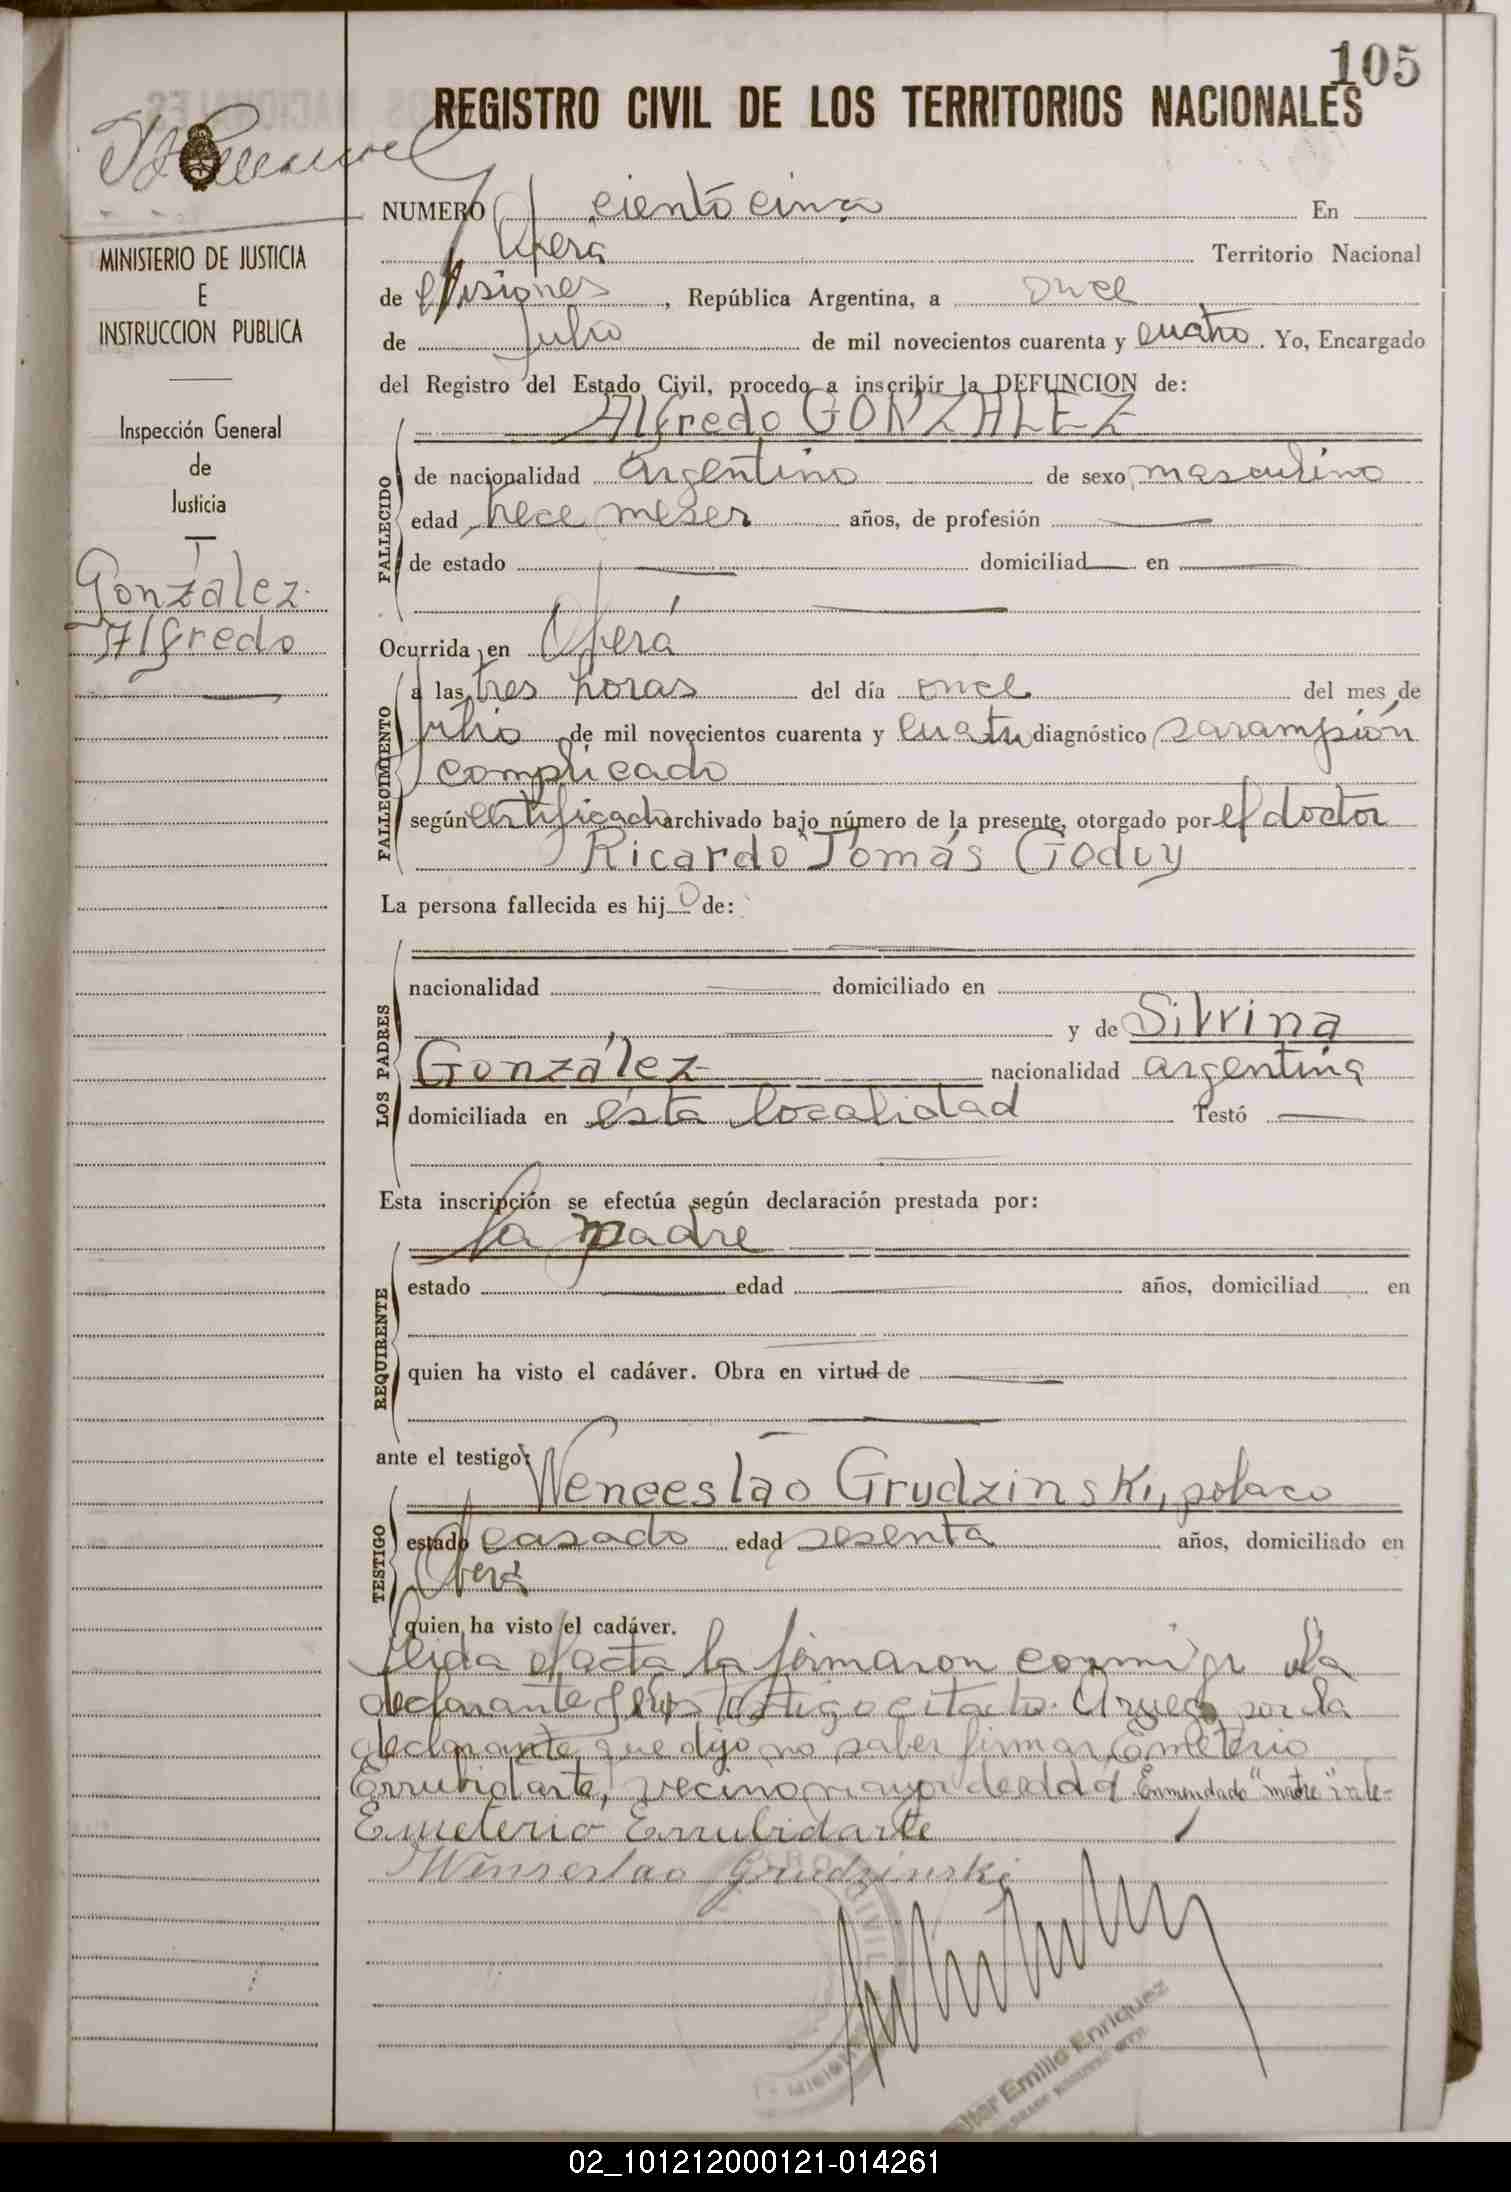 105
REGISTRO CIVIL DE LOS TERRITORIOS NACIONALES
MINISTERIO DE JUSTICIA
E
INSTRUCCION PUBLICA
Inspección General
de
Justicia
González
Alfredo
NUMERO ciento cinco En
Oberá Territorio Nacional
de Misiones, República Argentina, a once
de Julio de mil novecientos cuarenta y cuatro. Yo, Encargado
del Registro del Estado Civil, procedo a inscribir la DEFUNCION de:
Alfredo GONZALEZ
FALLECIDO
de nacionalidad argentino de sexo masculino
edad trece meses años, de profesión —
de estado — domiciliad— en —
Ocurrida en Oberá
FALLECIMIENTO
a las tres horas del día once del mes de
julio de mil novecientos cuarenta y cuatro diagnóstico sarampión
complicado
según certificado archivado bajo número de la presente, otorgado por el doctor
Ricardo Tomás Godoy
La persona fallecida es hijo de:
LOS PADRES
nacionalidad — domiciliado en
— y de Silvina
González nacionalidad argentina
domiciliada en ésta localidad Testó —
Esta inscripción se efectúa según declaración prestada por:
la madre
REQUIRENTE
estado — edad — años, domiciliad en
quien ha visto el cadáver. Obra en virtud de —
ante el testigo:
Wenceslao Grudzinski, polaco
TESTIGO
estado casado edad sesenta años, domiciliado en
Oberá
quien ha visto el cadáver.
Leida el acta la firmaron conmigo la
declarante y el testigo citado. A ruego por la
declarante, que dijo no saber firmar, Emeterio
Errubidarte, vecino mayor de edad. Enmendado "madre" vale-
Emeterio Errubidarte
Wenseslao Grudzinski
REGISTRO CIVIL
MISIONES
Walter Emilio Enriquez
ENCARGADO REGISTRO CIVIL
02_101212000121-014261